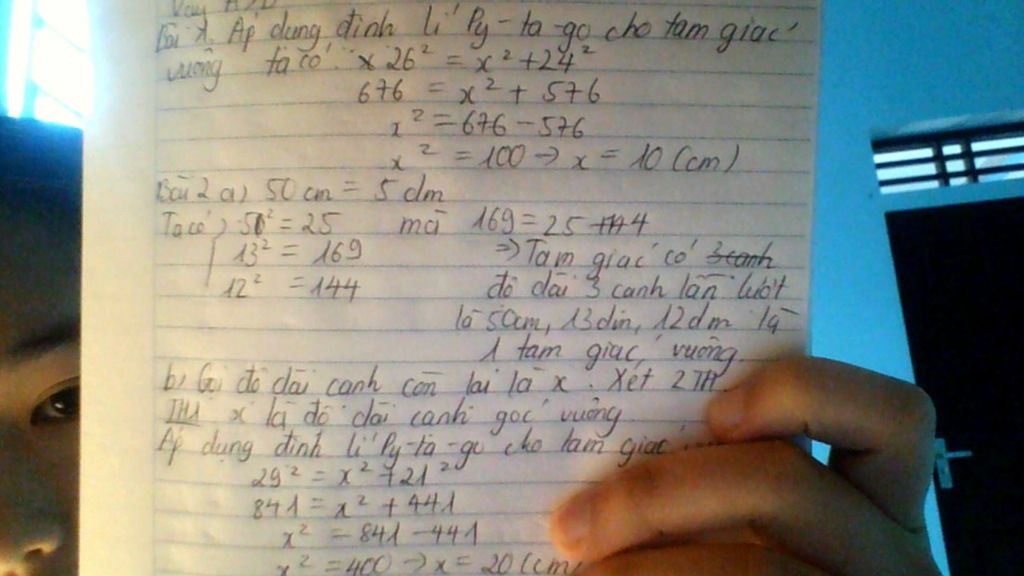 Bài 1. Áp dụng định lí Py-ta-go cho tam giác
vuông ta có: 26² = x² + 24²
676 = x² + 576
x² = 676 - 576
x² = 100 → x = 10 (cm)
Bài 2 a) 50 cm = 5 dm
Ta có 5² = 25 mà 169 = 25 + 144
13² = 169 => Tam giác có 3 cạnh
12² = 144 độ dài 3 cạnh lần lượt
là 50cm, 13dm, 12dm là
1 tam giác vuông.
b) Gọi độ dài cạnh còn lại là x. Xét 2 TH
TH1 x là độ dài cạnh góc vuông
Áp dụng định lí Py-ta-go cho tam giác
29² = x² + 21²
841 = x² + 441
x² = 841 - 441
x² = 400 → x = 20 (cm)